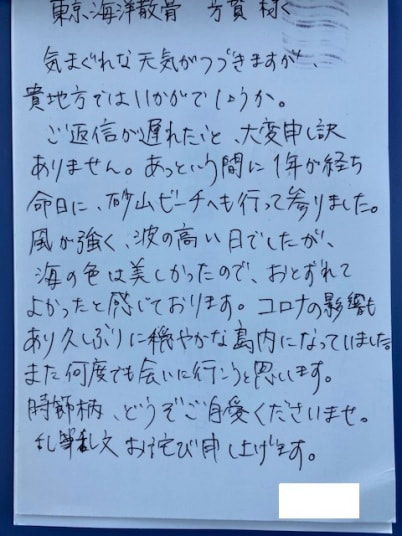 東京海洋散骨 方質 様
気まぐれな天気がつづきますが、
貴地方ではいかがでしょうか。
ご返信が遅れたこと、大変申し訳
ありません。あっという間に1年が経ち
命日に、砂山ビーチへも行って参りました。
風が強く、波の高い日でしたが、
海の色は美しかったので、おとずれて
よかったと感じております。コロナの影響も
あり久しぶりに穏やかな島内になっていました。
また何度でも会いに行こうと思います。
時節柄、どうぞご自愛くださいませ。
乱筆乱文 お詫び申し上げます。